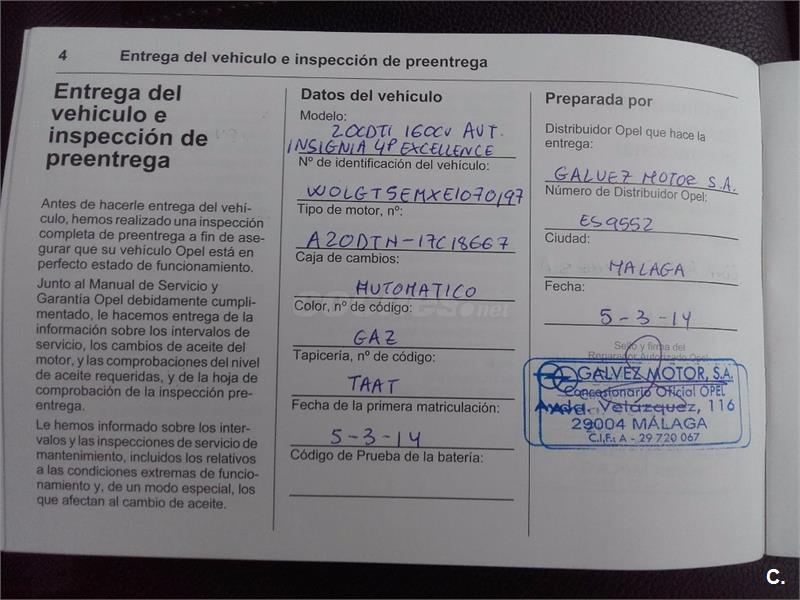 4 Entrega del vehiculo e inspección de preentrega
Entrega del
vehiculo e
inspección de
preentrega
Antes de hacerle entrega del vehí-
culo, hemos realizado una inspección
completa de preentrega a fin de ase-
gurar que su vehículo Opel está en
perfecto estado de funcionamiento.
Junto al Manual de Servicio y
Garantía Opel debidamente cumpli-
mentado, le hacemos entrega de la
información sobre los intervalos de
servicio, los cambios de aceite del
motor, y las comprobaciones del nivel
de aceite requeridas, y de la hoja de
comprobación de la inspección pre-
entrega.
Le hemos informado sobre los inter-
valos y las inspecciones de servicio de
mantenimiento, incluidos los relativos
a las condiciones extremas de funcio-
namiento y, de un modo especial, los
que afectan al cambio de aceite.
Datos del vehículo
Modelo:
2.0CDTI 160CV AUT.
INSIGNIA 4P EXCELLENCE
Nº de identificación del vehículo:
W0LGT5EMXE1070197
Tipo de motor, nº:
A20DTH-17C18667
Caja de cambios:
AUTOMATICO
Color, nº de código:
GAZ
Tapicería, nº de código:
TAAT
Fecha de la primera matriculación:
5-3-14
Código de Prueba de la batería:
Preparada por
Distribuidor Opel que hace la
entrega:
GALVEZ MOTOR S.A.
Número de Distribuidor Opel:
ES9552
Ciudad:
MALAGA
Fecha:
5-3-14
Sello y firma del
Reparador Autorizado Opel
GALVEZ MOTOR, S.A.
Concesionario Oficial OPEL
Avda. Velázquez, 116
29004 MÁLAGA
C.I.F.: A - 29 720 067
C.